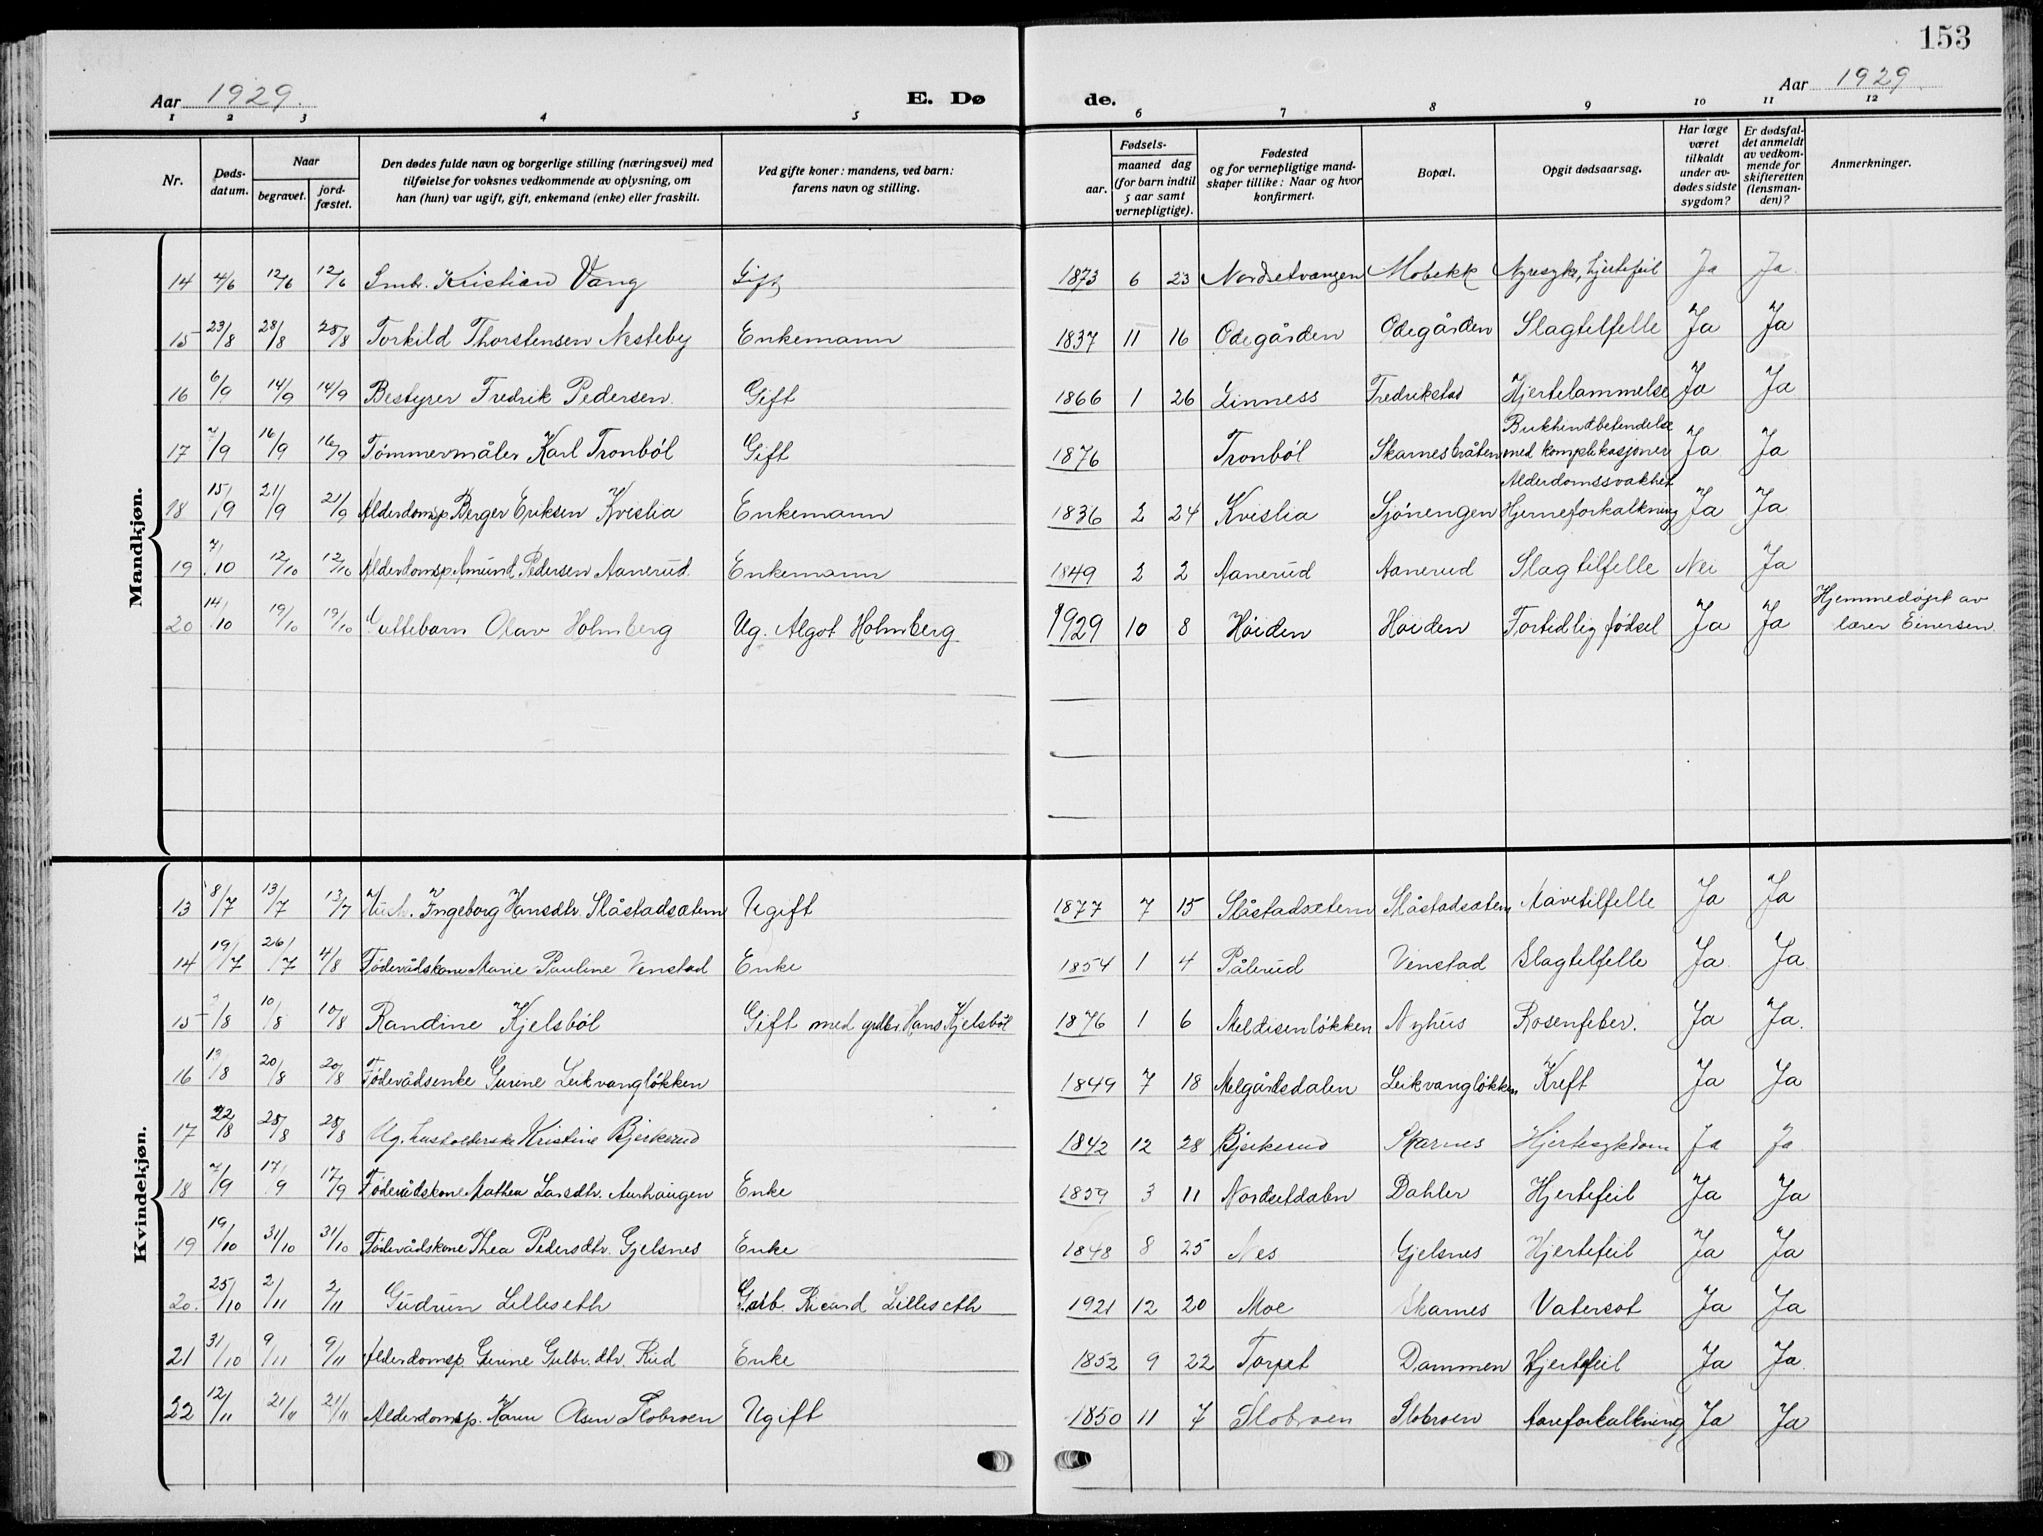 153
Aar 1929.
E. Dø
de.
Aar 1929
1 2 3 4 5 6 7 8 9 10 11 12
Nr.
Døds-
datum.
Naar
begravet.
jord-
fæstet.
Den dødes fulde navn og borgerlige stilling (næringsvei) med
tilføielse for voksnes vedkommende av oplysning, om
han (hun) var ugift, gift, enkemand (enke) eller fraskilt.
Ved gifte koner: mandens, ved barn:
farens navn og stilling.
Fødsels-
aar.
maaned dag
(for barn indtil
5 aar samt
vernepligtige).
Fødested
og for vernepligtige mand-
skaper tillike: Naar og hvor
konfirmert.
Bopæl.
Opgit dødsaarsag.
Har læge
været
tilkaldt
under av-
dødes sidste
sygdom?
Er dødsfal-
det anmeldt
av vedkom-
mende for
skifteretten
(lensman-
den)?
Anmerkninger.
Mandkjøn.
14 4/6 12/6 12/6 Smbr. Kristian Vang Gift 1873 6 23 Nordsetvangen Mobekk Nyresyk, hjertefeil Ja Ja.
15 23/8 28/8 28/8 Torkild Thorstensen Nesteby Enkemann 1837 11 16 Ødegården Ødegården Slagtilfelle Ja Ja
16 6/9 14/9 14/9 Bestyrer Fredrik Pedersen. Gift 1866 1 26 Linness Fredrikstad Hjertelammelse Ja Ja
17 7/9 16/9 16/9 Tømmermåler Karl Tronbøl Gift 1876 Tronbøl Skarnesbråten Bukhindbetendelse med komplikasjoner Ja Ja
18 15/9 21/9 21/9 Alderdomsp. Berger Eriksen Kvislia Enkemann 1836 2 24 Kvislia Sjønengen Alderdomssvakhet Hjerneforkalkning Ja Ja
19 7/10 12/10 12/10 Alderdomsp. Amund Pedersen Aanerud. Enkemann 1849 2 2 Aanerud Aanerud Slagtilfelle Nei Ja
20 14/10 19/10 19/10 Guttebarn Olav Holmberg Ug. Algot Holmberg 1929 10 8 Høiden Høiden Fortidlig fødsel Ja Ja Hjemmedøpt av
lærer Einersen.
Kvindekjøn.
13 8/7 13/7 13/7 Ingeborg Hansdtr. Slåstadsætern Ugift 1877 7 15 Slåstadsætern Slåstadsætern Mavetilfelle Ja Ja
14 19/7 26/7 4/8 Føderådskone Marie Pauline Venstad Enke 1854 1 4 Pålerud Venstad Slagtilfelle Ja. Ja.
15 7/8 10/8 10/8 Randine Kjelsbøl Gift med grdbr. Hans Kjelsbøl 1876 1 6 Meldisenløkken Nyhus Rosenfeber. Ja Ja.
16 13/8 20/8 20/8 Føderådsenke Gurine Leikvangløkken 1849 7 18 Melgårdsdalen Leikvangløkken Kreft Ja Ja
17 22/8 28/8 28/8 Ug. husholderske Kristine Bjerkerud 1842 12 28 Bjerkerud Skarnes Hjertesykdom Ja Ja.
18 7/9 17/9 17/9 Føderådskone Mathea Larsdtr. Aurhaugen Enke 1859 3 11 Nordsetdalen Dahler Hjertefeil Ja Ja
19 19/10 31/10 31/10 Føderådskone Thea Pedersdtr. Gjelsnes Enke 1848 8 25 Nes Gjelsnes Hjertefeil Ja Ja
20. 25/10 2/11 2/11 Gudrun Lilleseth Garb. Ricard Lilleseth 1921 12 20 Moe Skarnes Vatersot Ja Ja
21 31/10 9/11 9/11 Alderdomsp. Gurine Gulbr. dtr. Rud Enke 1852 9 22 Torpet Dammen Hjertefeil Ja Ja.
22 12/11 21/11 21/11 Alderdomsp. Karen Olsen Slobroen Ugift 1850 11 7 Slobroen Slobroen Aareforkalkning Ja Ja